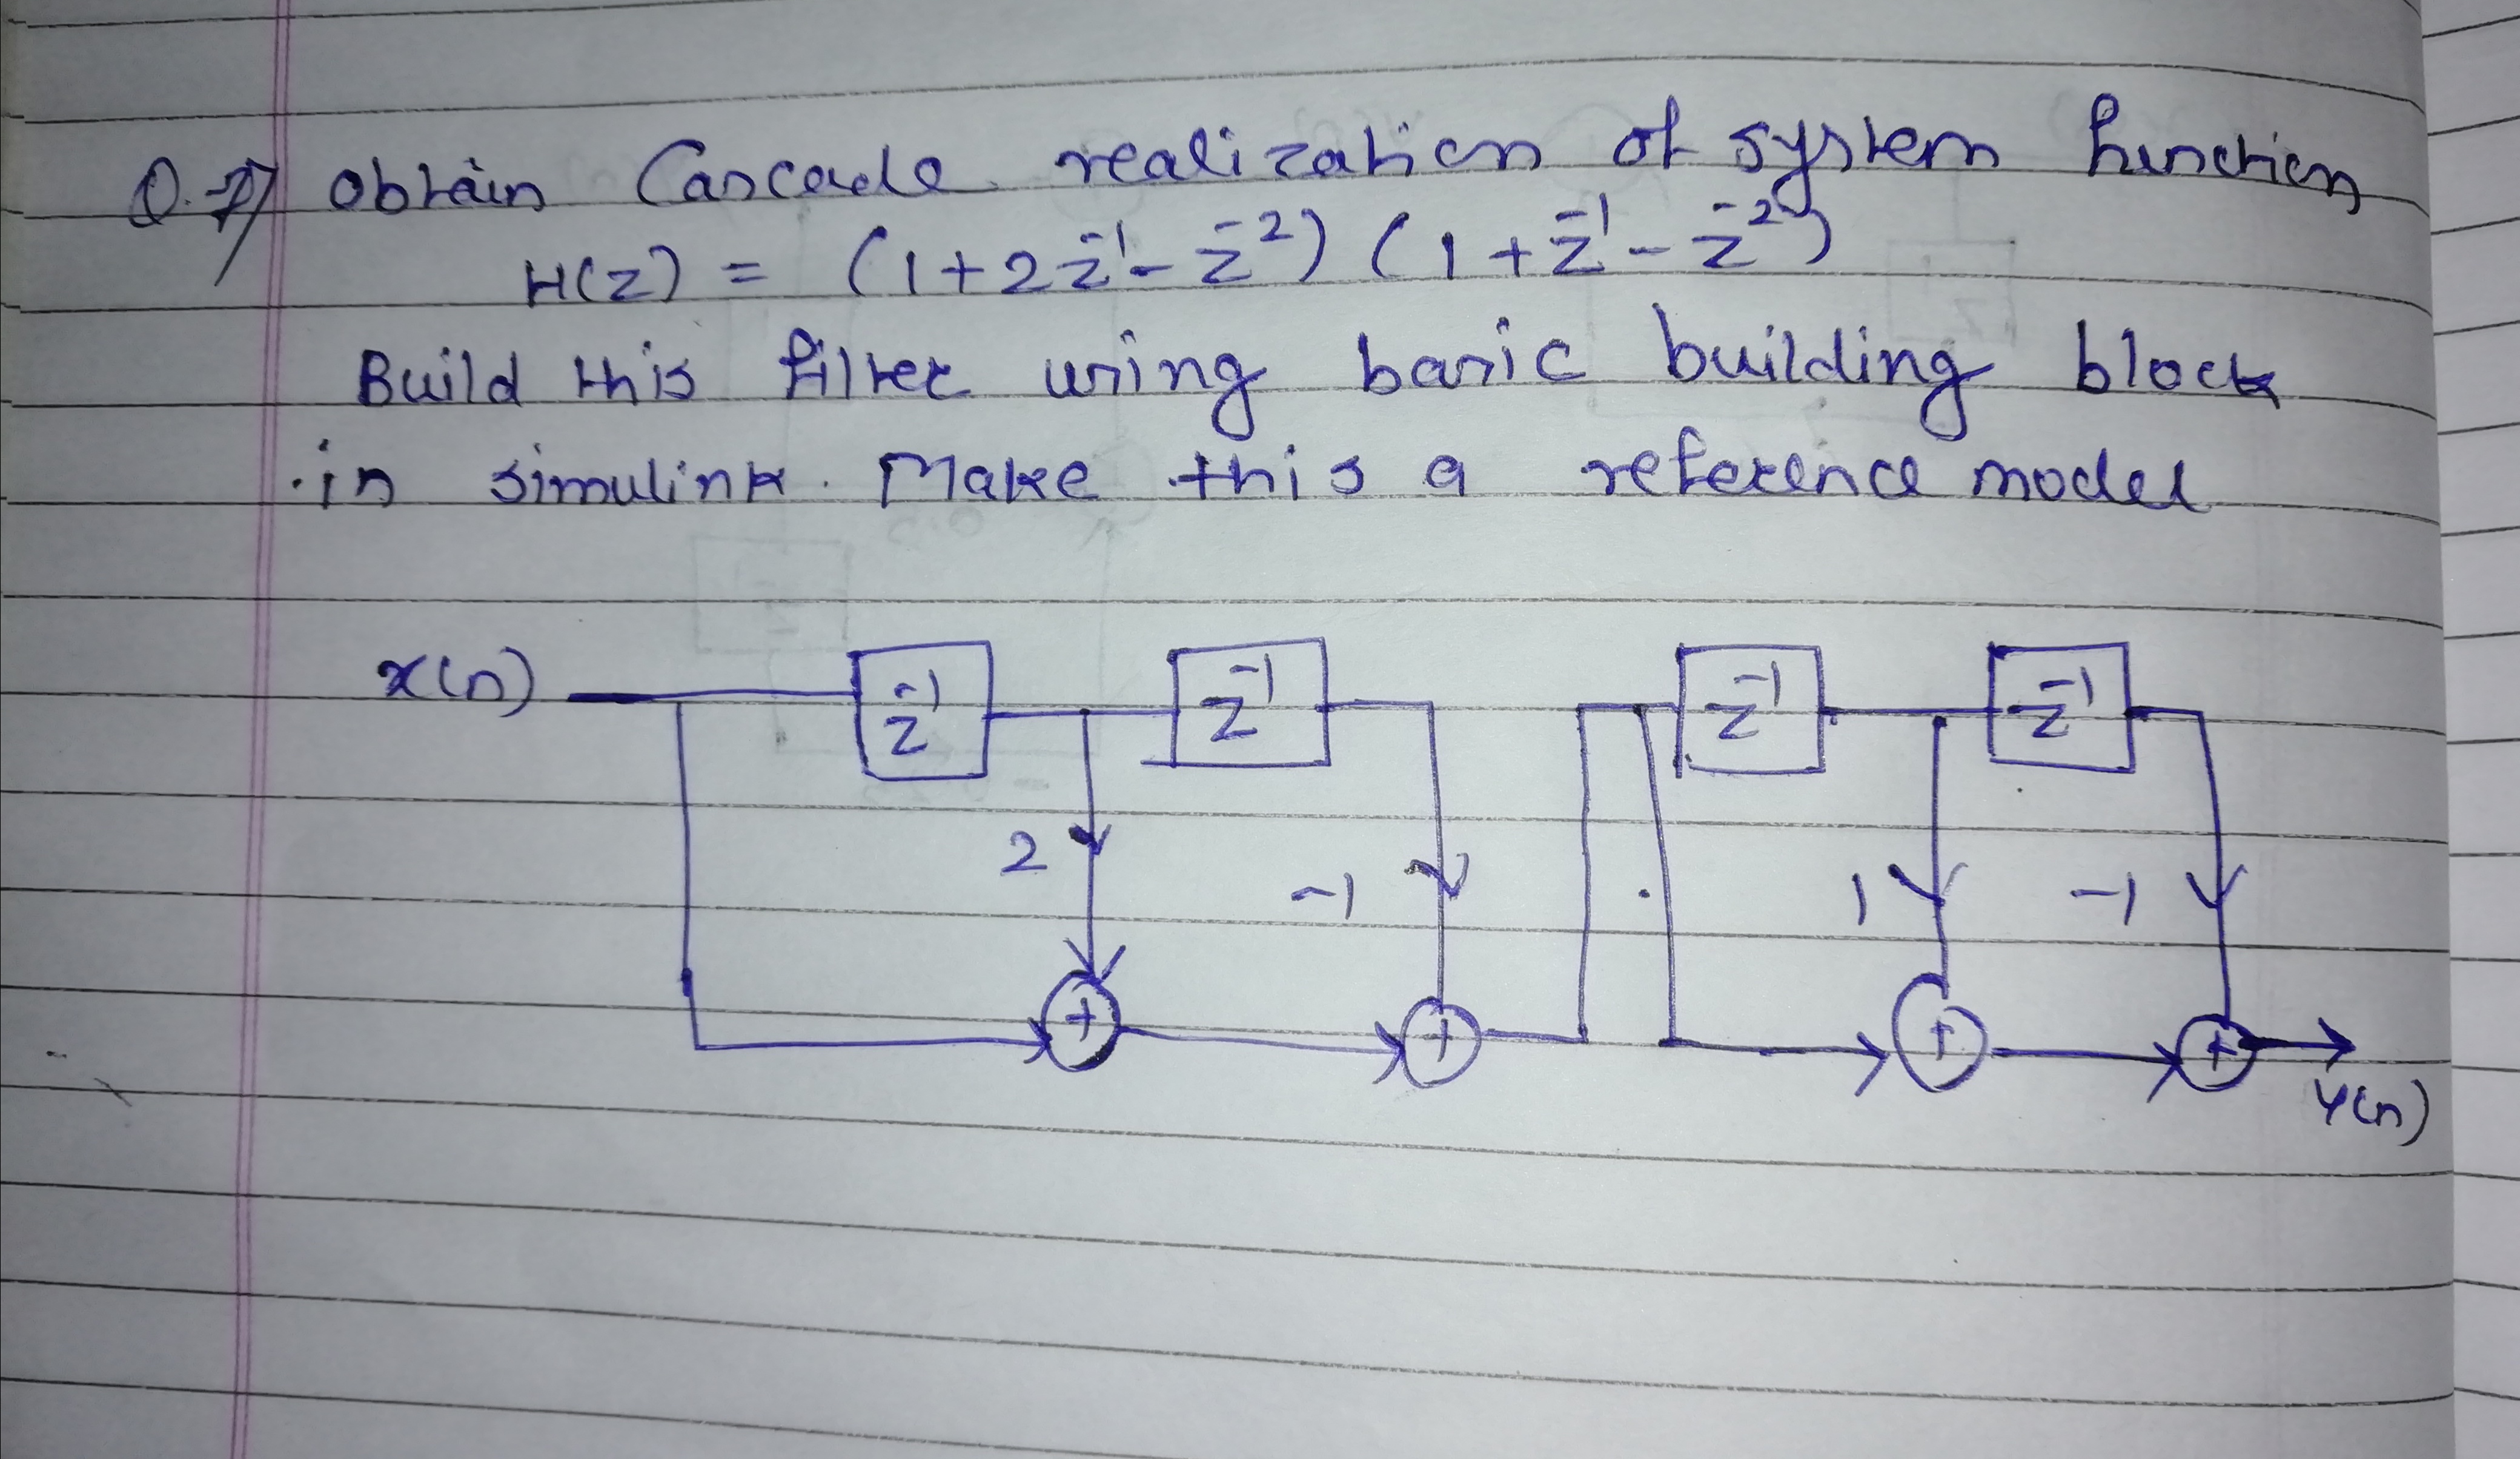 Q.7) Obtain Cascade realization of system function
H(z) = (1+2z⁻¹-z⁻²) (1+z⁻¹-z⁻²)
Build this filter using basic building block
in simulink. Make this a reference model
x(n) z⁻¹ z⁻¹ z⁻¹ z⁻¹
2 -1 1 -1
+ + + +
y(n)